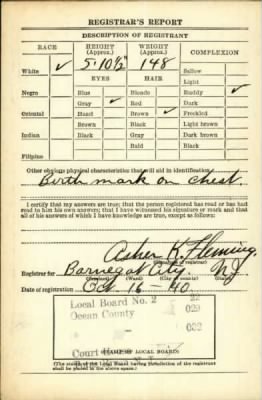 REGISTRAR'S REPORT
DESCRIPTION OF REGISTRANT
RACE HEIGHT (Approx.) WEIGHT (Approx.) COMPLEXION
White ✓ 5' 10½" 148 Sallow
Light
EYES HAIR
Negro Blue Blonde Ruddy ✓
Gray ✓ Red Dark
Oriental Hazel Brown ✓ Freckled
Brown Black Light brown
Indian Black Gray Dark brown
Bald Black
Filipino
Other obvious physical characteristics that will aid in identification
Birth mark on chest.
I certify that my answers are true; that the person registered has read or has
had read to him his own answers; that I have witnessed his signature or mark and that
all of his answers of which I have knowledge are true, except as follows:
Asher K. Fleming
(Signature of registrar)
Registrar for Barnegat City, NJ
(Ward) (City or county)
Date of registration Oct 16-40
Local Board No. 2 22
Ocean County 029
032
Court
(STAMP OF LOCAL BOARD)
(The stamp of the Local Board having jurisdiction of the registrant
shall be placed in the above space.)